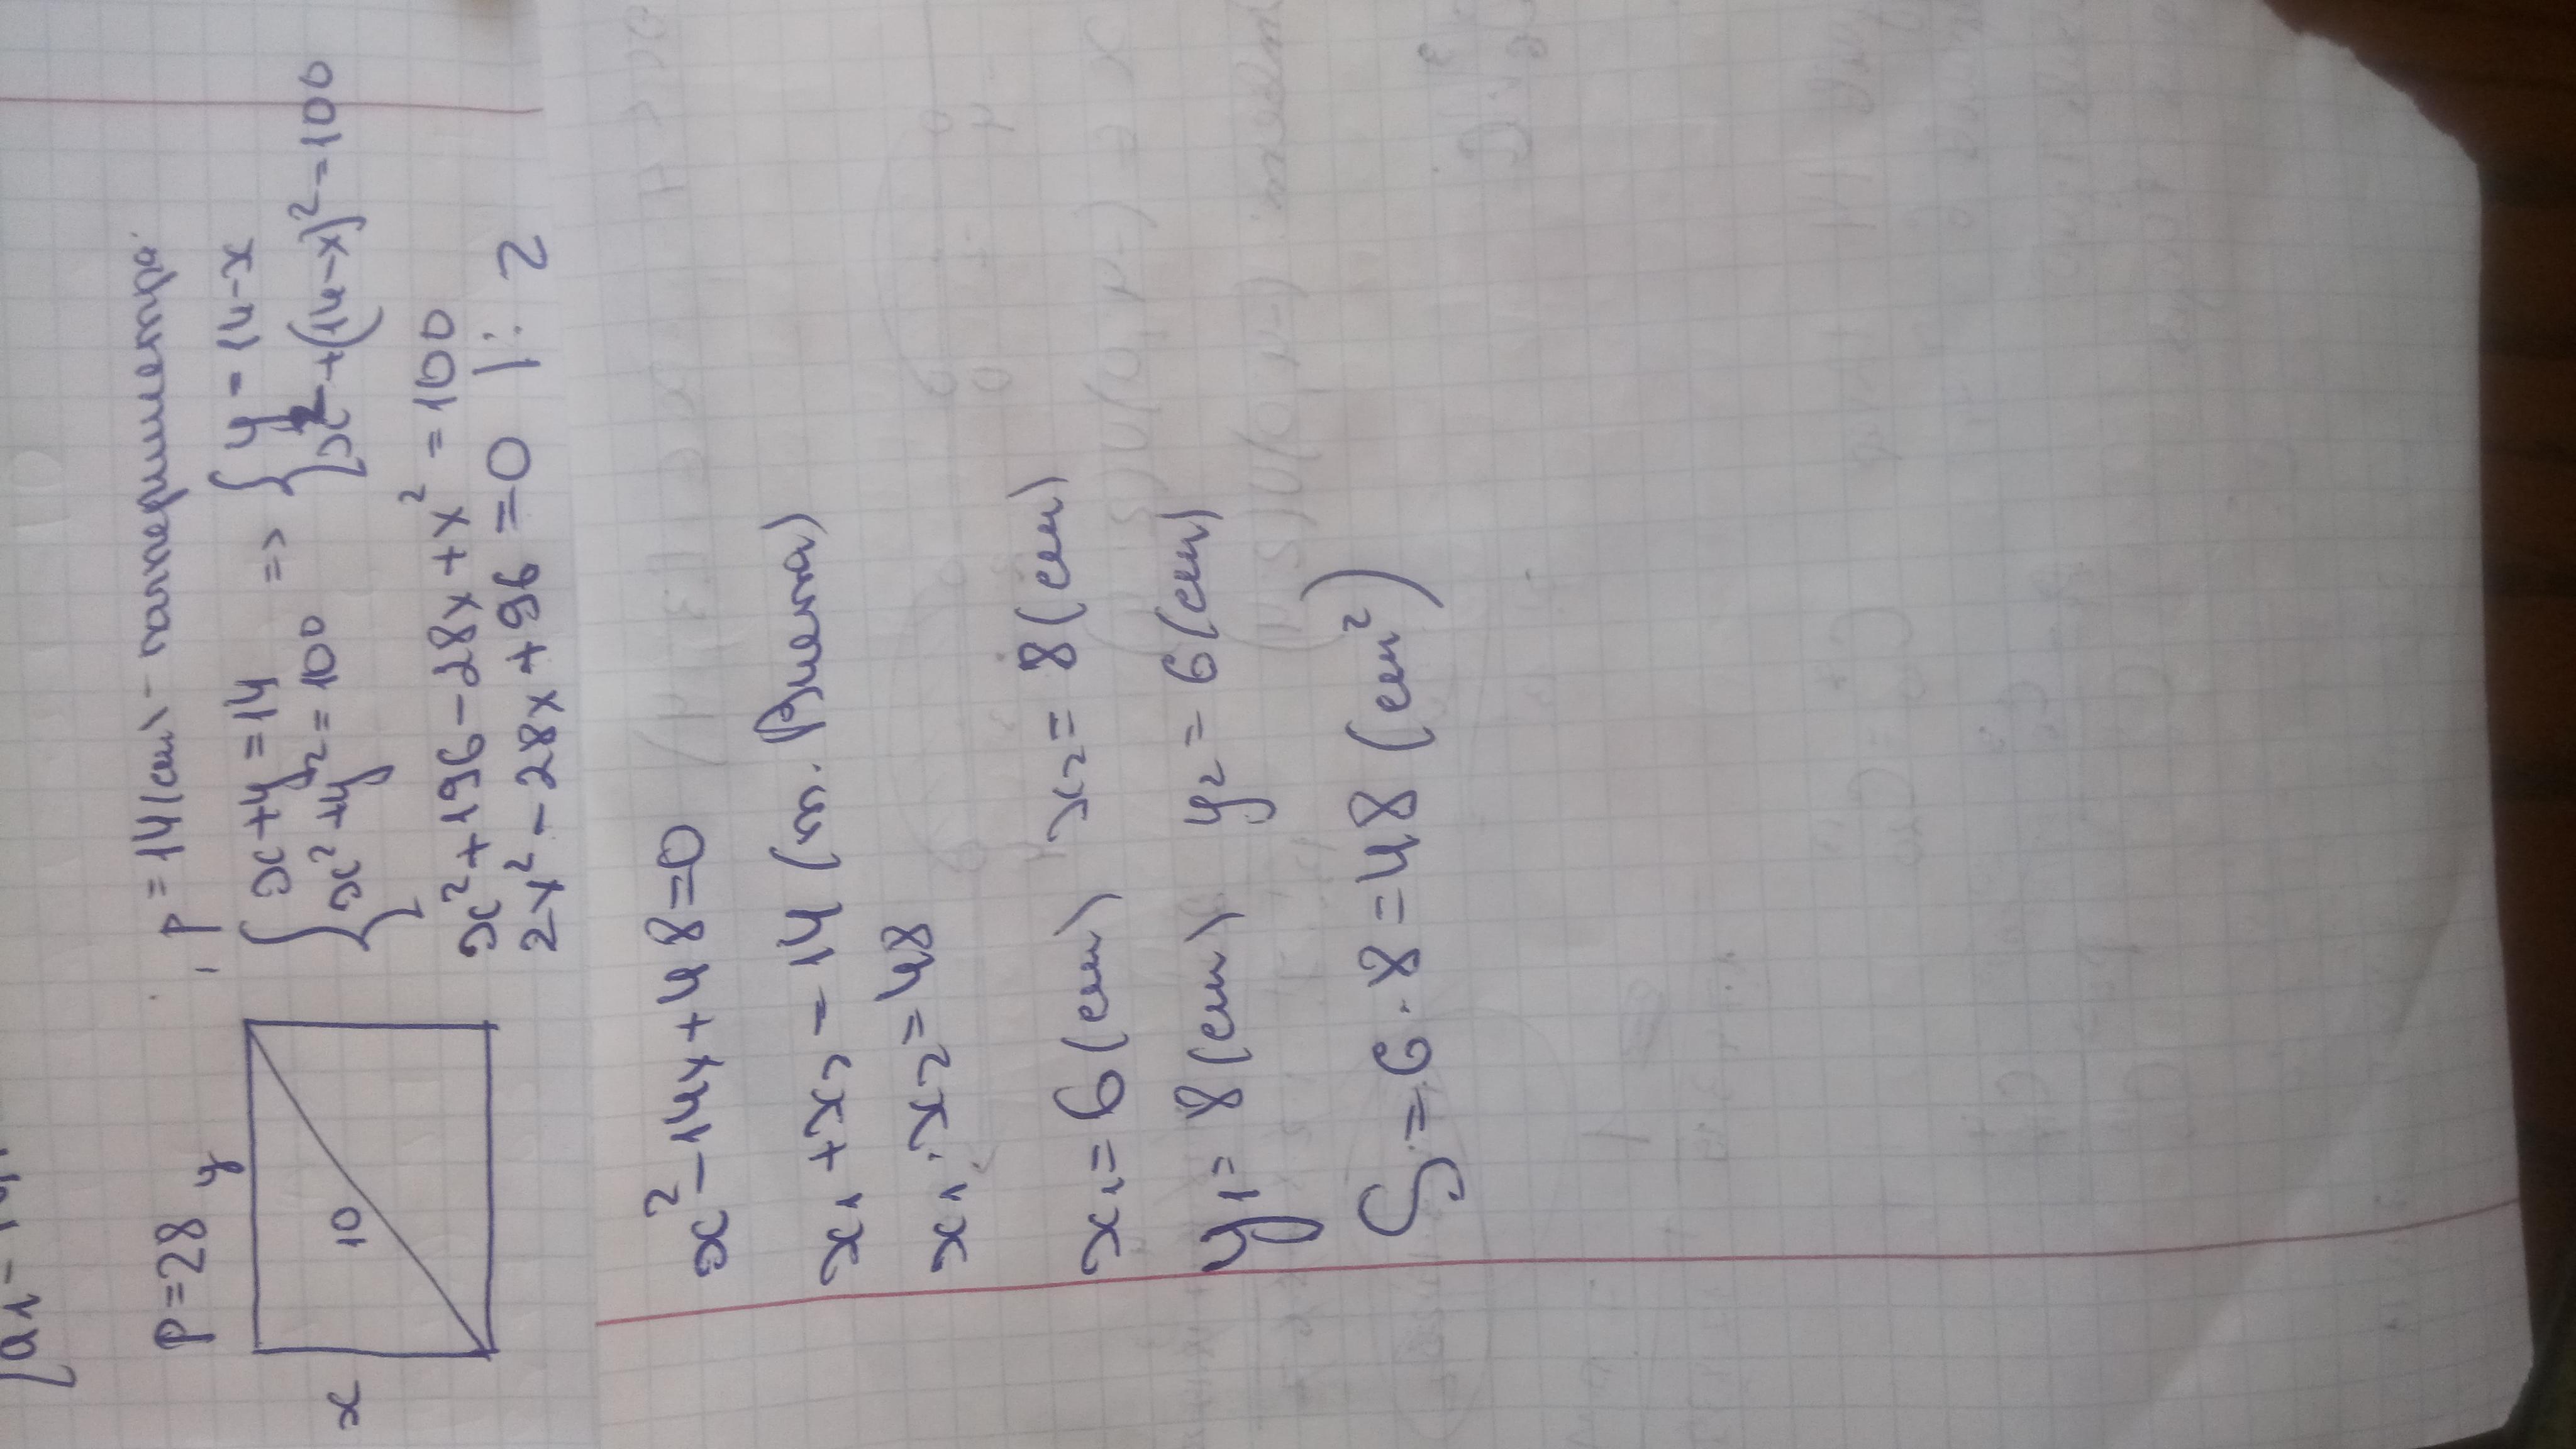 P=28
y
x
10
p = 14(см) - полупериметра.
{ x+y=14
{ x²+y²=100
=>
{ y = 14-x
{ x²+(14-x)²=100
x²+196-28x+x²=100
2x²-28x+96=0 |: 2
x²-14x+48=0
x₁+x₂=14 (т. Виета)
x₁·x₂=48
x₁=6(см) x₂=8(см)
y₁=8(см) y₂=6(см)
S=6·8=48(см²)